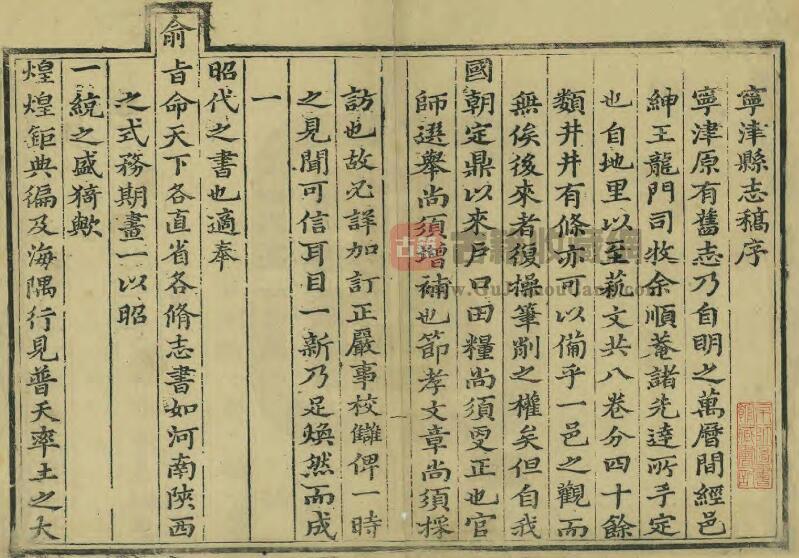 寧津縣志稿序
寧津原有舊志乃自明之萬曆間經邑
紳王龍門司牧余順菴諸先達所手定
也自地里以至蓺文共八卷分四十餘
類井井有條亦可以備乎一邑之觀而
無俟後來者復操筆削之權矣但自我
國朝定鼎以來戶口田糧尚須更正也官
師選舉尚須增補也節孝文章尚須採
訪也故必詳加訂正嚴事校讎俾一時
之見聞可信耳目一新乃足煥然而成
一
昭代之書也適奉
俞旨命天下各直省各脩志書如河南陝西
之式務期畫一以昭
一統之盛猗歟
煌煌鉅典徧及海隅行見普天率土之大
古籍
www.GuJiShouCang.com